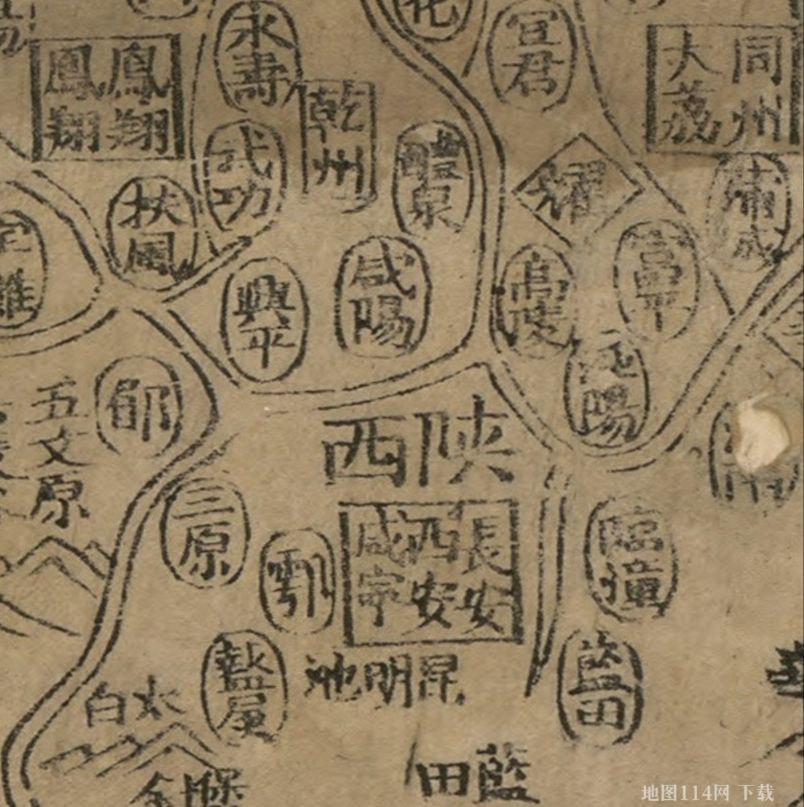 永壽
宜君
同州
大荔
鳳翔
鳳翔
乾州
武功
醴泉
扶風
耀
蒲城
富平
高陵
咸陽
興平
郿
涇陽
五丈原
陝西
三原
鄠
長安
西安
咸寧
臨潼
盩厔
昆明池
藍田
太白
藍田
地图114网 下载